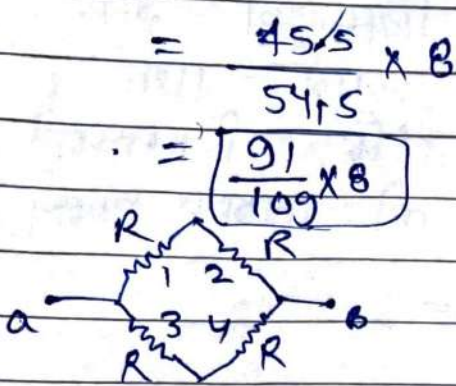 = 45.5 / 54.5 × 8
. = 91 / 109 × 8
R R
1 2
a 3 4 B
R R